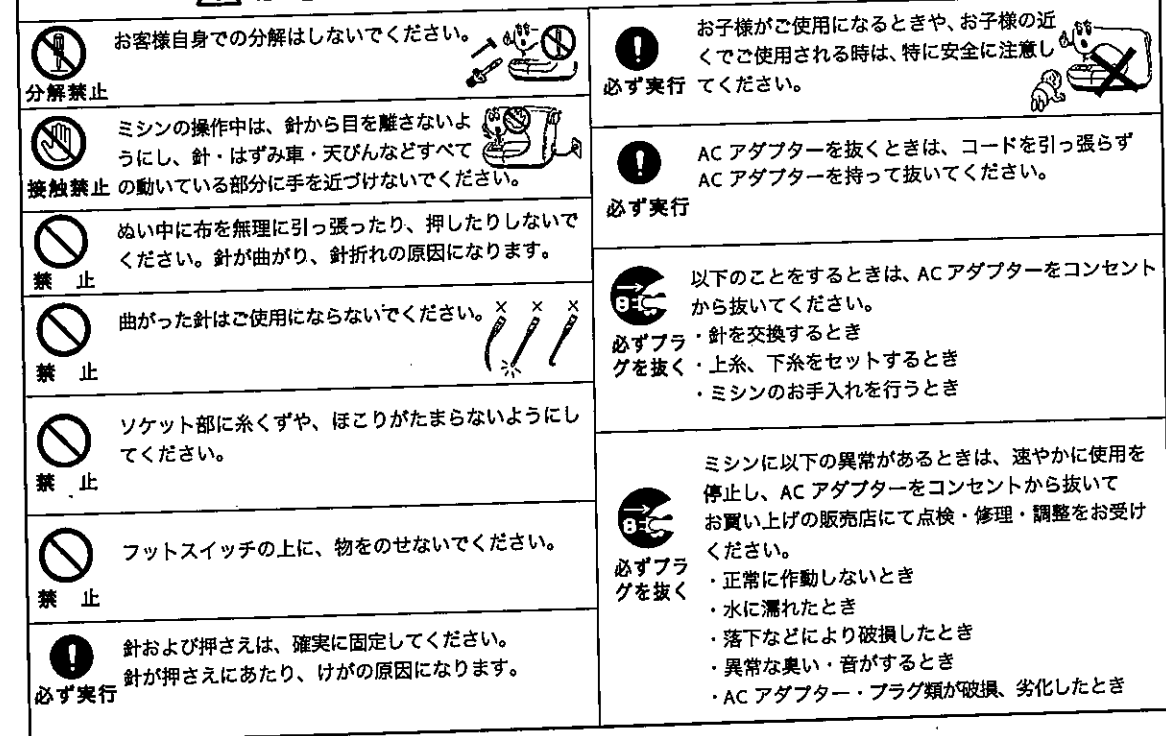 お客様自身での分解はしないでください。
分解禁止
ミシンの操作中は、針から目を離さないよ
うにし、針・はずみ車・天びんなどすべて
の動いている部分に手を近づけないでください。
接触禁止
ぬい中に布を無理に引っ張ったり、押したりしないで
ください。針が曲がり、針折れの原因になります。
禁 止
曲がった針はご使用にならないでください。
禁 止
ソケット部に糸くずや、ほこりがたまらないようにし
てください。
禁 止
フットスイッチの上に、物をのせないでください。
禁 止
針および押さえは、確実に固定してください。
針が押さえにあたり、けがの原因になります。
必ず実行
お子様がご使用になるときや、お子様の近
くでご使用される時は、特に安全に注意し
てください。
必ず実行
AC アダプターを抜くときは、コードを引っ張らず
AC アダプターを持って抜いてください。
必ず実行
以下のことをするときは、AC アダプターをコンセント
から抜いてください。
・針を交換するとき
・上糸、下糸をセットするとき
・ミシンのお手入れを行うとき
必ずプラ
グを抜く
ミシンに以下の異常があるときは、速やかに使用を
停止し、AC アダプターをコンセントから抜いて
お買い上げの販売店にて点検・修理・調整をお受け
ください。
・正常に作動しないとき
・水に濡れたとき
・落下などにより破損したとき
・異常な臭い・音がするとき
・AC アダプター・プラグ類が破損、劣化したとき
必ずプラ
グを抜く